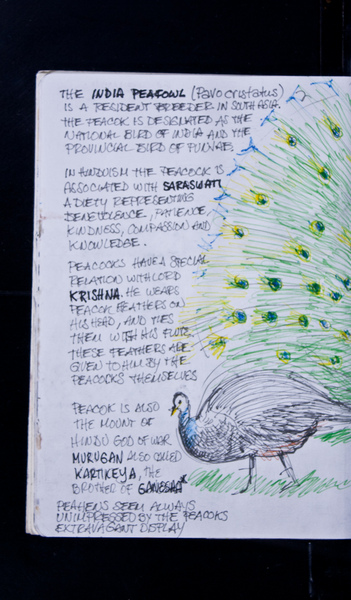 THE INDIA PEAFOWL (Pavo cristatus)
IS A RESIDENT BREEDER IN SOUTH ASIA.
THE PEACOK IS DESIGNATED AS THE
NATIONAL BIRD OF INDIA AND THE
PROVINCIAL BIRD OF PUNJAB.
IN HINDUISM THE PEACOCK IS
ASSOCIATED WITH SARASWATI
A DIETY REPRESENTING
BENEVOLENCE, PATIENCE,
KINDNESS, COMPASSION AND
KNOWLEDGE.
PEACOCKS HAVE A SPECIAL
RELATION WITH LORD
KRISHNA. HE WEARS
PEACOK FEATHERS ON
HIS HEAD, AND TIES
THEM WITH HIS FLUTE.
THESE FEATHERS ARE
GIVEN TO HIM BY THE
PEACOCKS THEMSELVES
PEACOK IS ALSO
THE MOUNT OF
HINDU GOD OF WAR
MURUGAN ALSO CALLED
KARTIKEYA, THE
BROTHER OF GANESHA
PEAHENS SEEM ALWAYS
UNIMPRESSED BY THE PEACOKS
EXTRAVAGANT DISPLAY